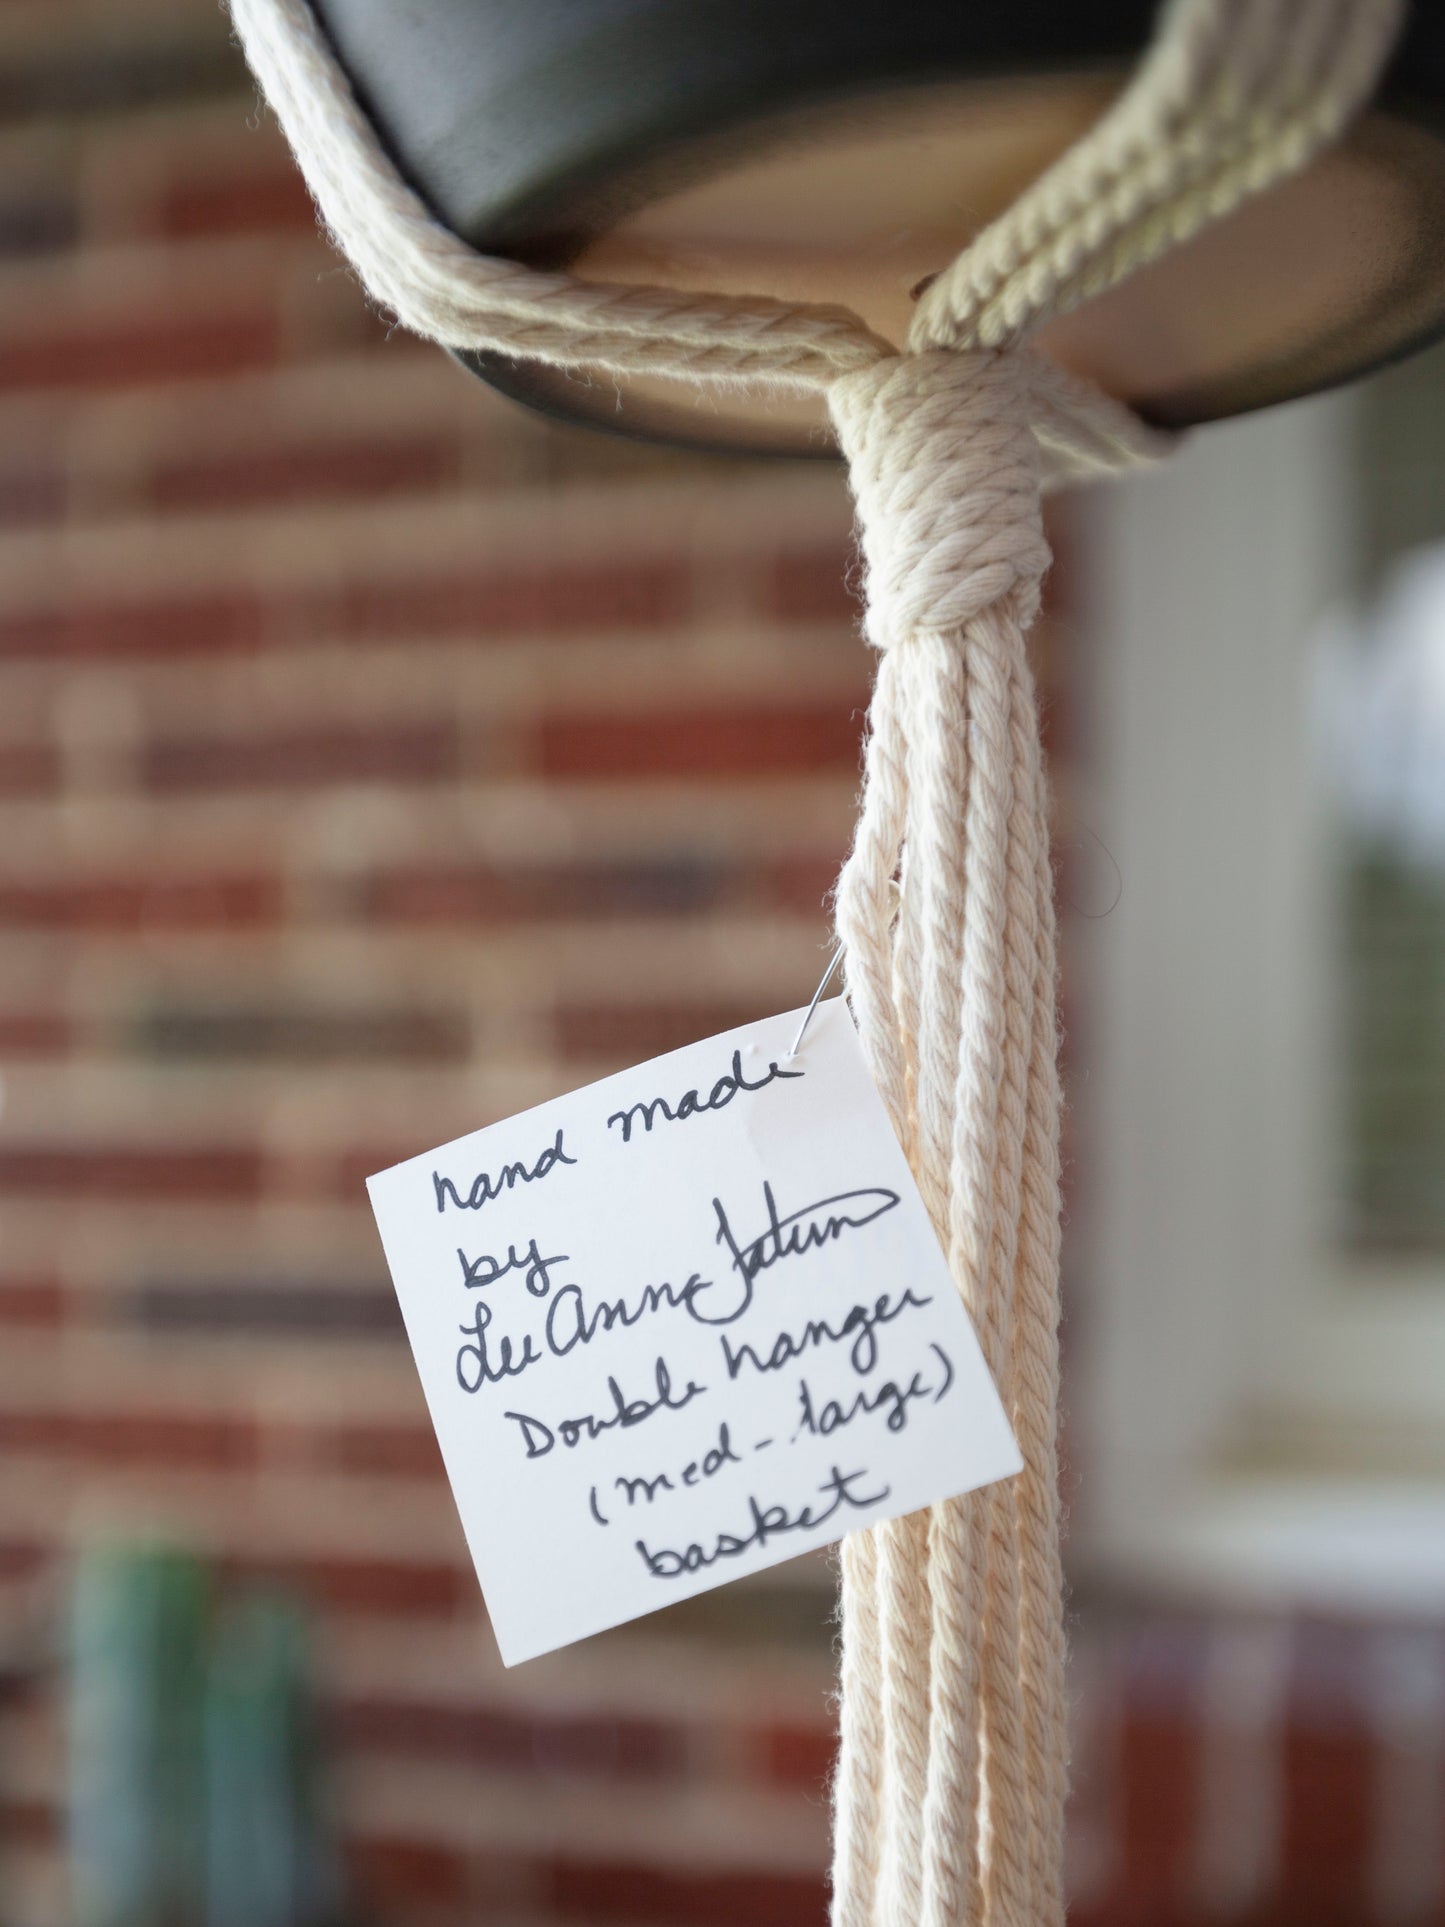 hand made
by
LeeAnne Tatum
Double hanger
(med - large)
basket